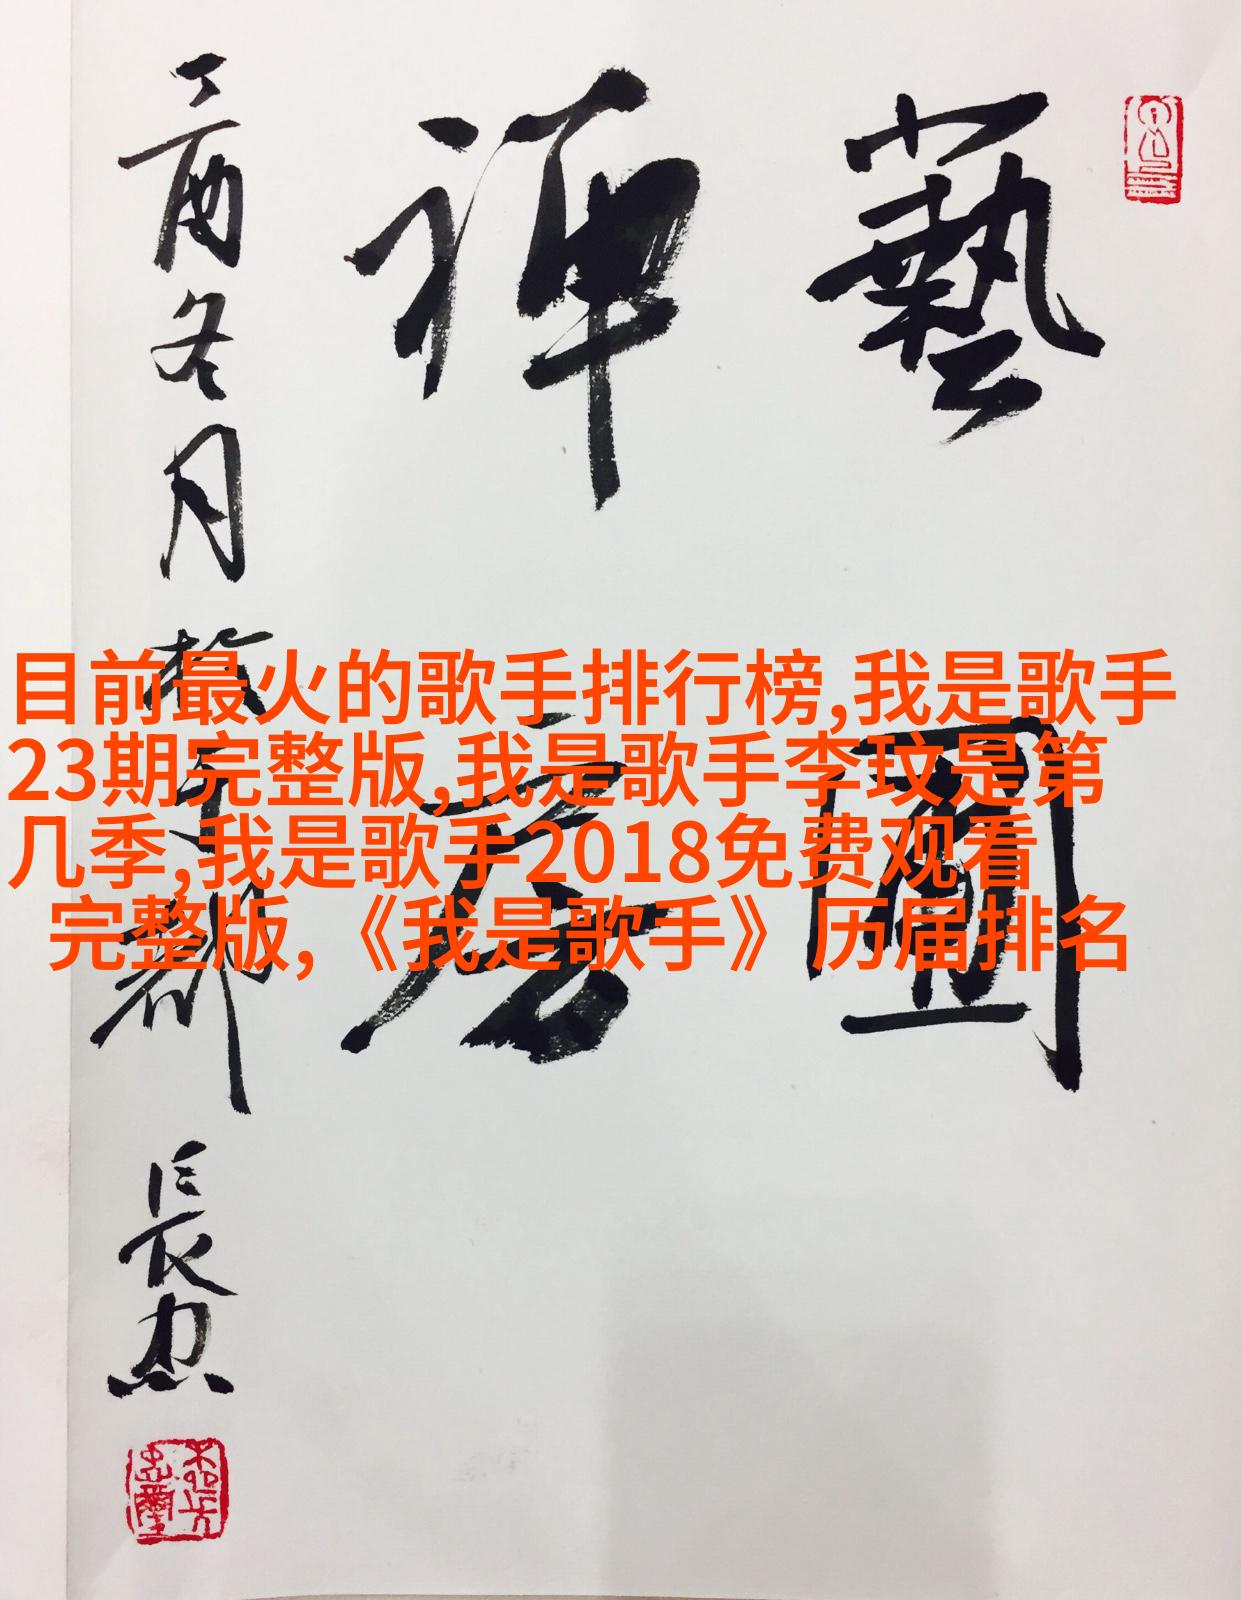 藝
禪
丁酉冬月於 都長忠
目前最火的歌手排行榜,我是歌手
23期完整版,我是歌手李玟是第
几季,我是歌手2018免费观看
完整版,《我是歌手》历届排名